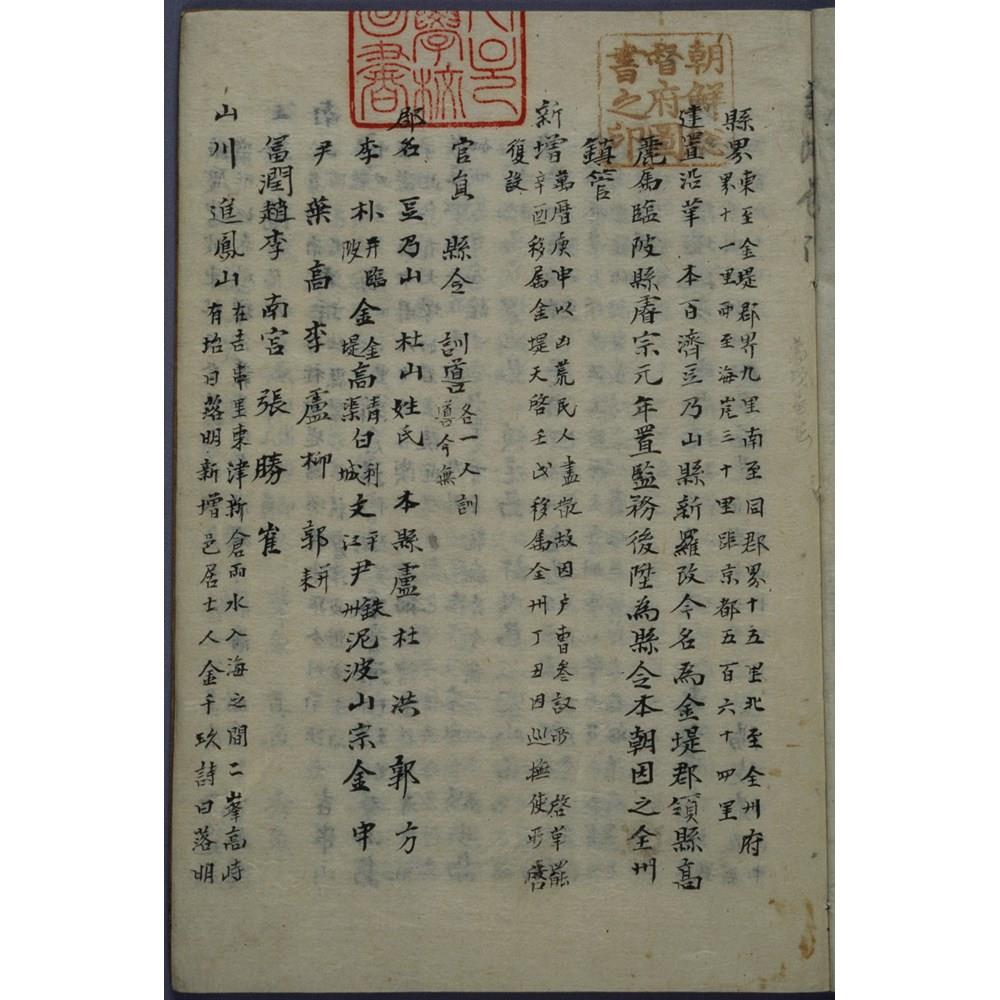 縣界東至金堤郡界九里南至同郡界十五里北至全州府
界十一里西至海崖三十里距京都五百六十四里
建置沿革 本百濟豆乃山縣新羅改今名為金堤郡領縣高
麗屬臨陂縣睿宗元年置監務後陞為縣令本朝因之全州
鎮管
新增萬曆庚申以凶荒民人盡散故因戶曹叅議所啓革罷
辛酉移属金堤天啓壬戌移属全州丁丑因巡撫使所啓
復設
官員 縣令 訓導各一人訓
導今無
郡名 豆乃山 杜山 姓氏 本縣盧 杜 洪 郭 方
李 朴并臨
陂 金金
堤 高青
渠 白利
城 文平
江 尹鉄
州 泥波山宗金 申
尹 葉 高 李 盧 柳 郭并
来
富潤趙 李 南宮 張 勝 崔
山川 進鳳山在吉串里東津新倉両水入海之間二峯高峙
有坮曰落明新增邑居士人金千玖詩曰落明
朝鮮総
督府圖
書之印
學校
圖書